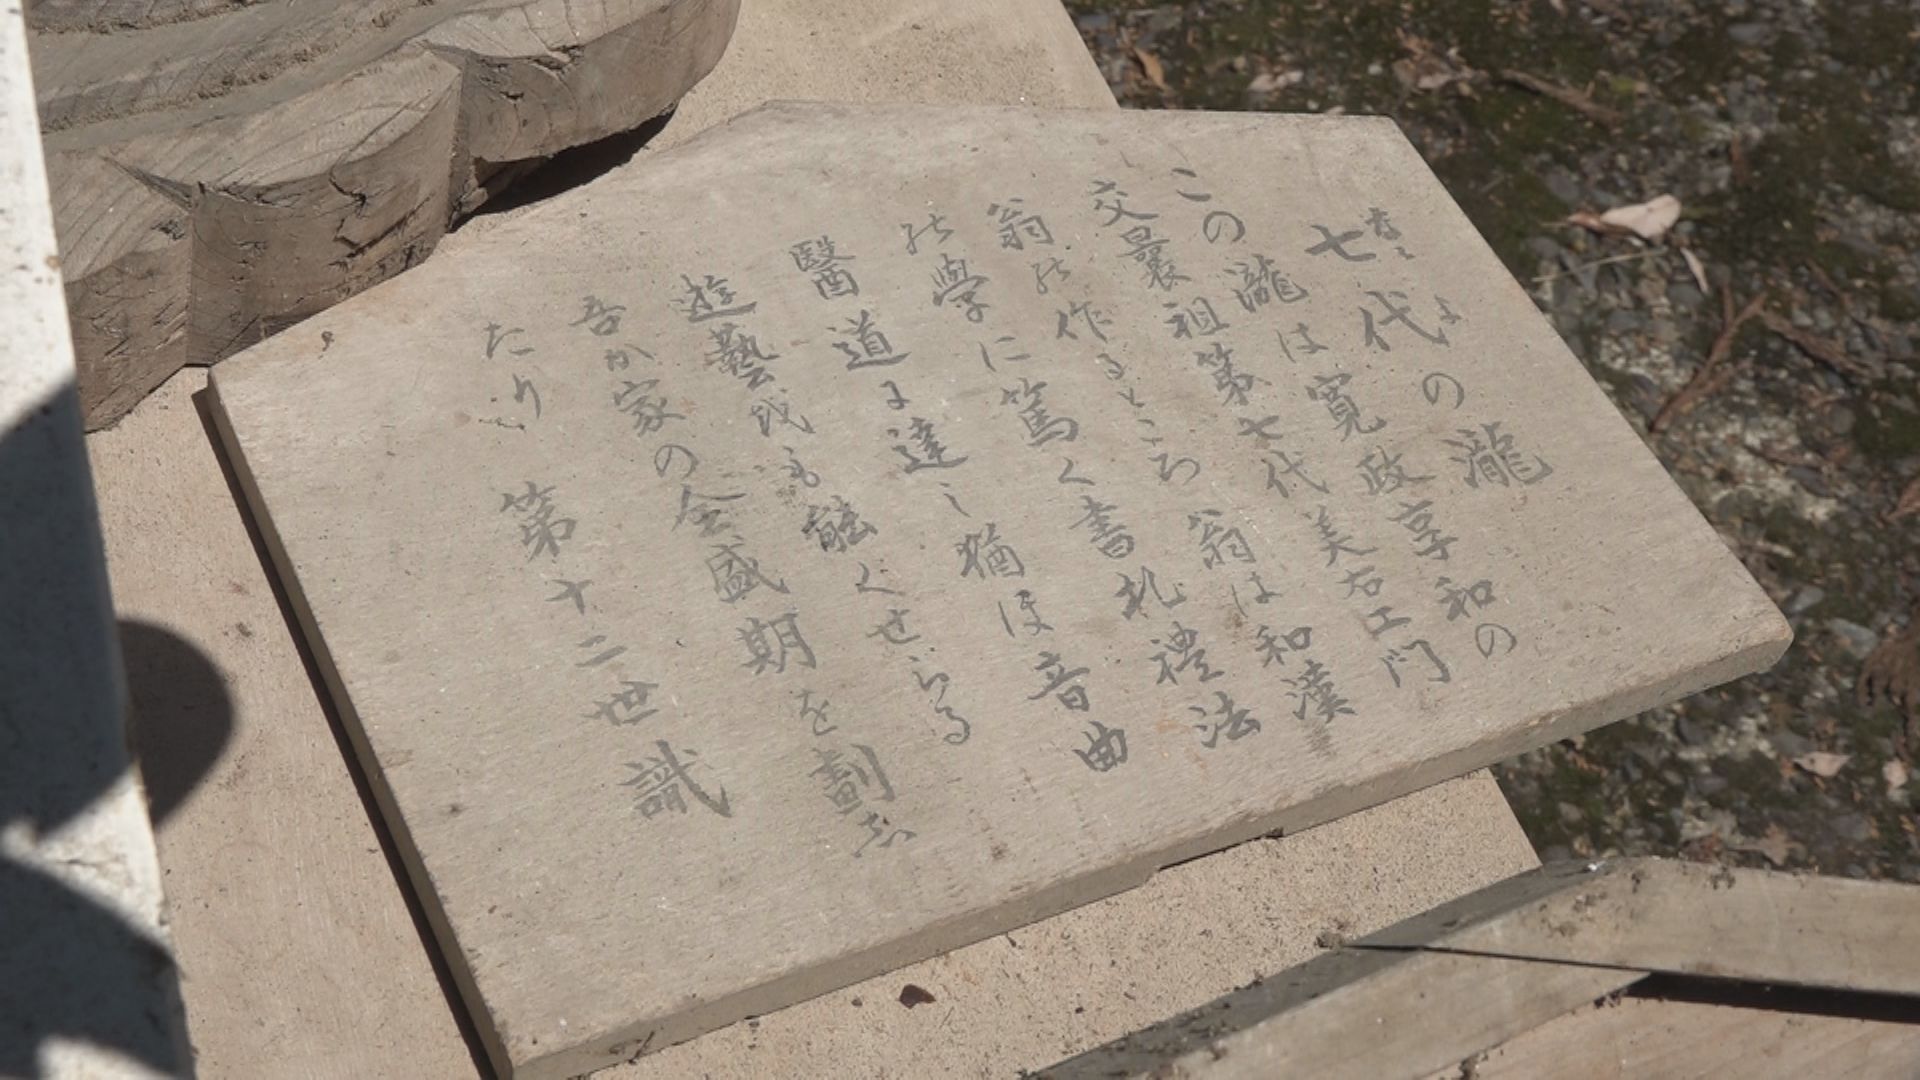 七代の瀧
なゝ よ
この瀧は寛政享和の
交曩祖第七代美右エ門
翁の作るところ翁は和漢
の學に篤く書札禮法
醫道に達し猶ほ音曲
遊藝或も能くせらる
吾が家の全盛期を劃し
たり 第十二世識